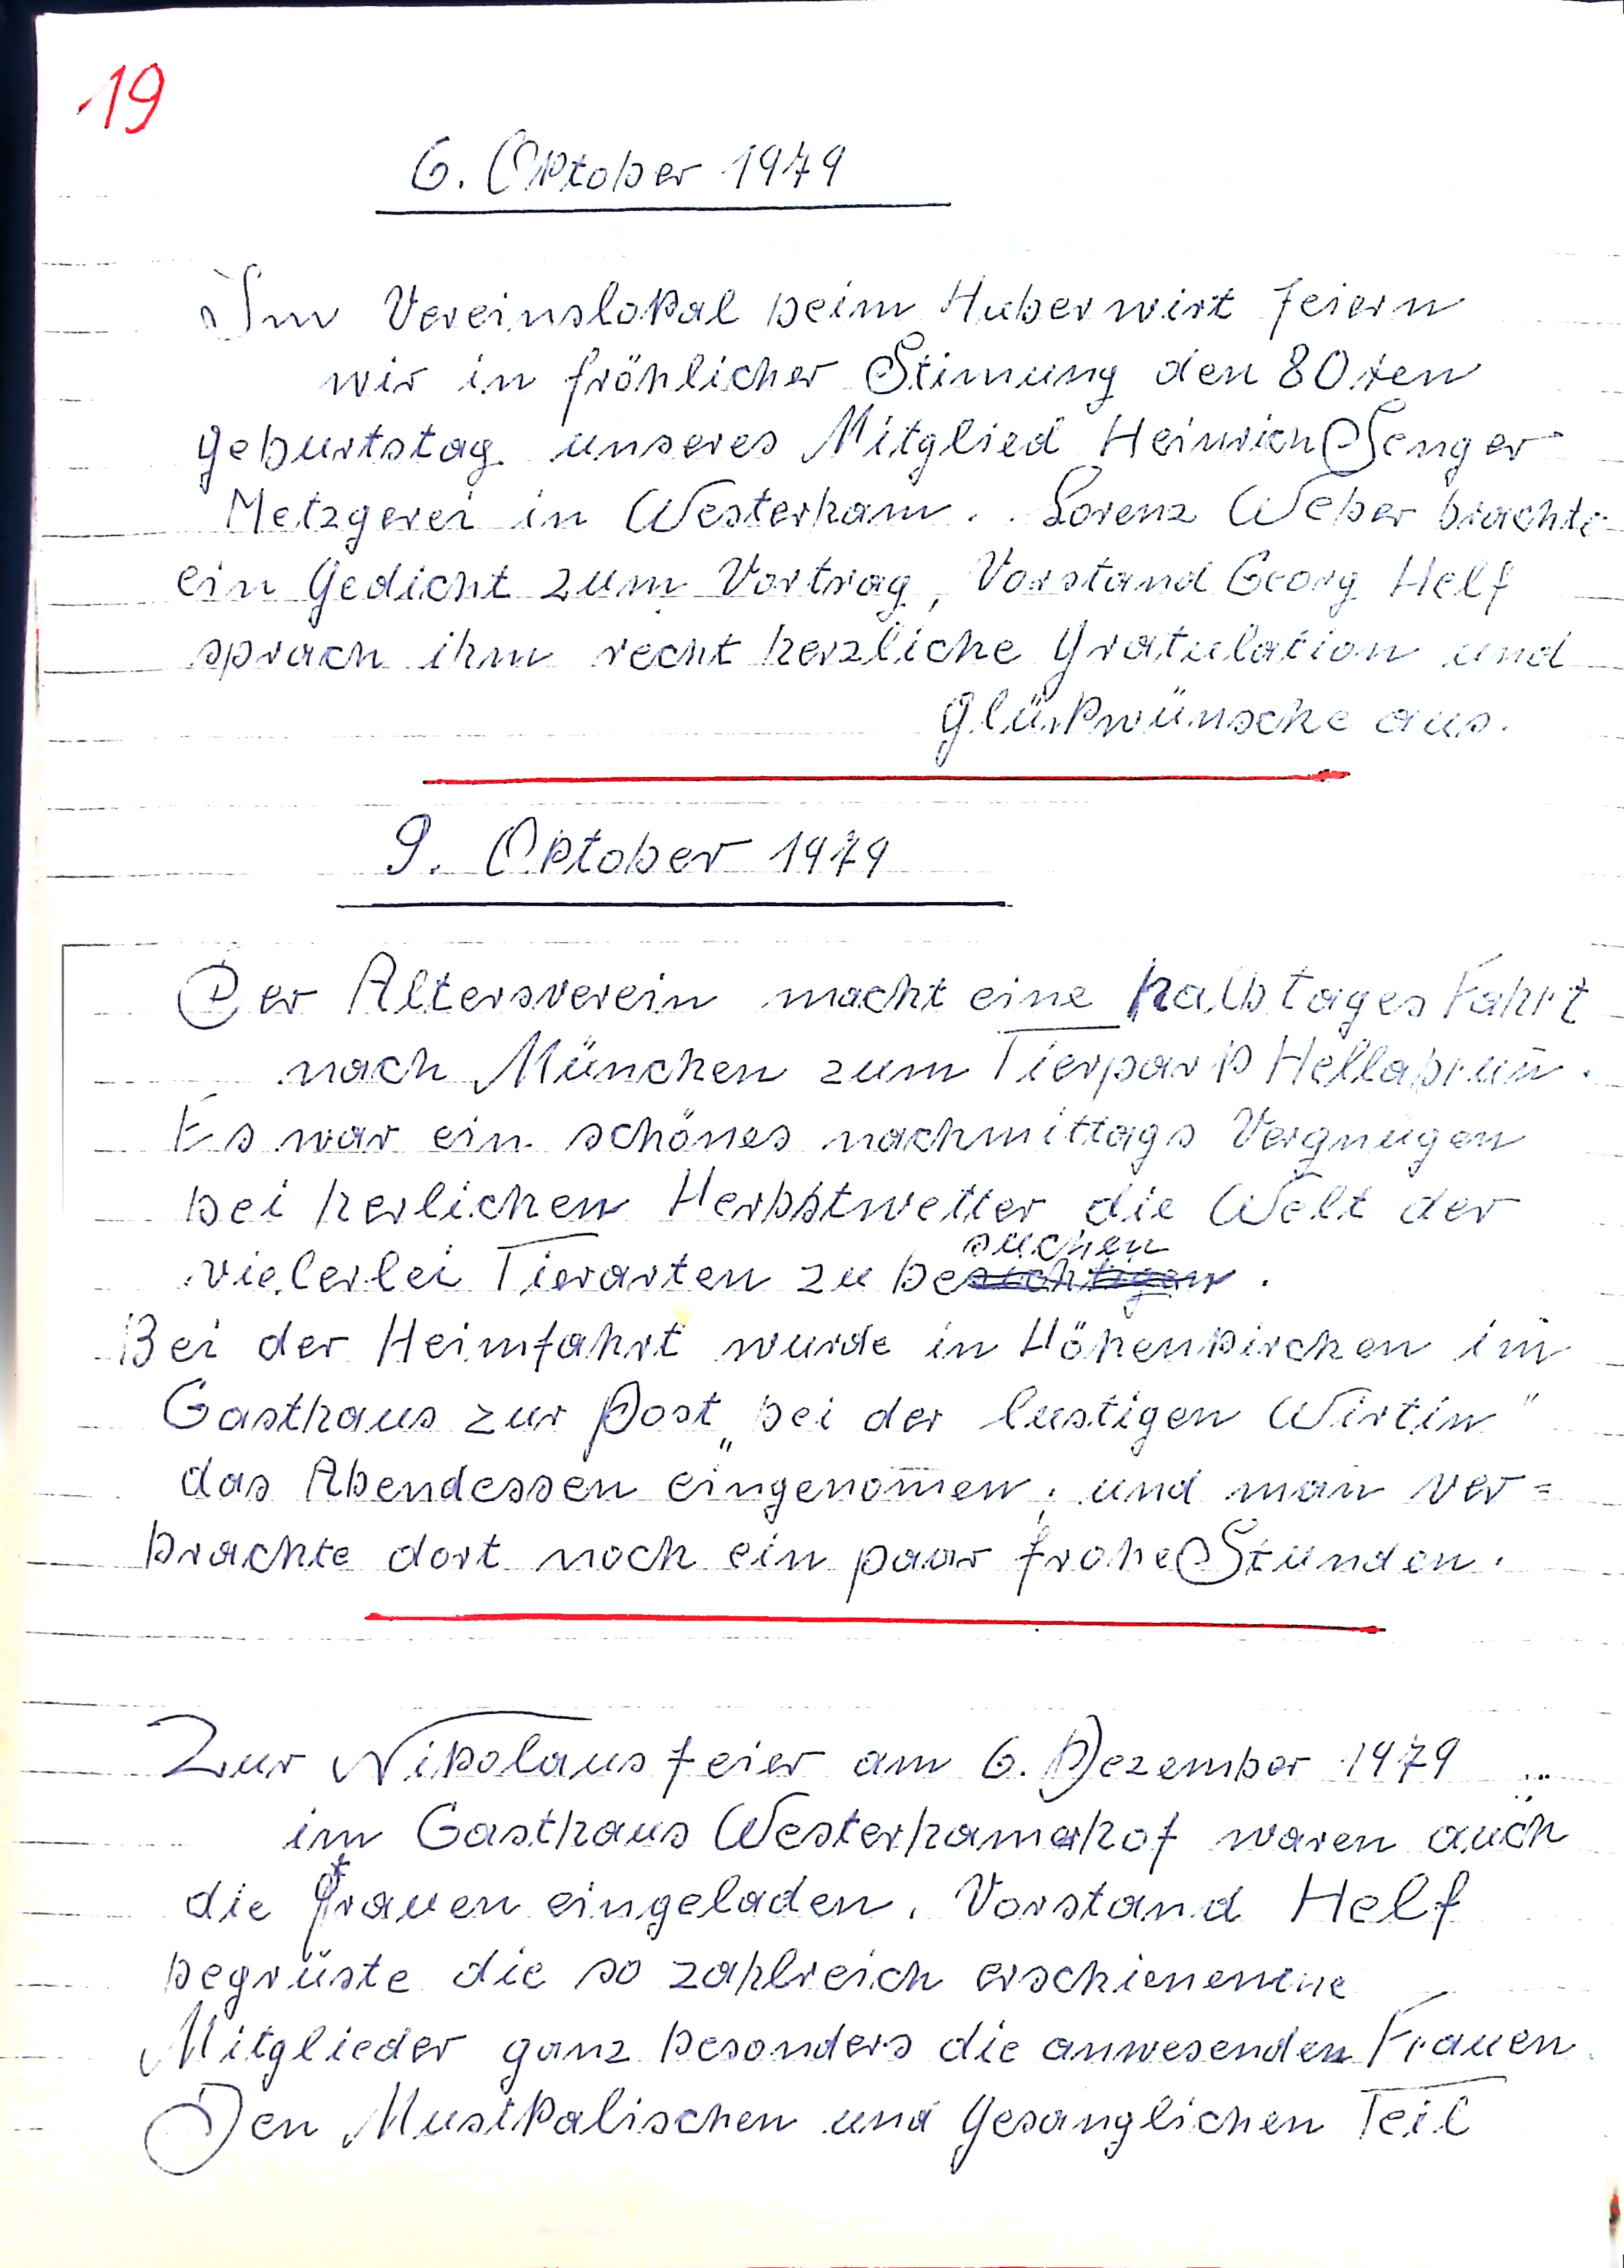 19
6. Oktober 1979
Im Vereinslokal beim Huberwirt feiern
wir in fröhlicher Stimung den 80ten
geburtstag unseres Mitglied Heinrich Senger
Metzgerei in Westerham. Lorenz Weber brachte
ein Gedicht zum Vortrag, Vorstand Georg Helf
sprach ihm recht herzliche Gratulation und
glückwünsche aus.
9. Oktober 1979
Der Altersverein macht eine halbtages Fahrt
nach München zum Tierpark Hellabrun̄.
Es war ein schönes nachmittags Vergnügen
bei herlichen Herbstwetter die Welt der
suchen
vielerlei Tierarten zu besichtigen.
Bei der Heimfahrt wurde in Höhenkirchen im
Gasthaus zur Post „bei der lustigen Wirtin"
das Abendessen eingenom̄en, und man ver=
brachte dort noch ein paar frohe Stunden.
Zur Nikolausfeier am 6. Dezember 1979
im Gasthaus Westerhamerhof waren auch
die Frauen eingeladen. Vorstand Helf
begrüste die so zahlreich erschienenene
Mitglieder ganz besonders die anwesenden Frauen.
Den Musikalischen und Gesanglichen Teil